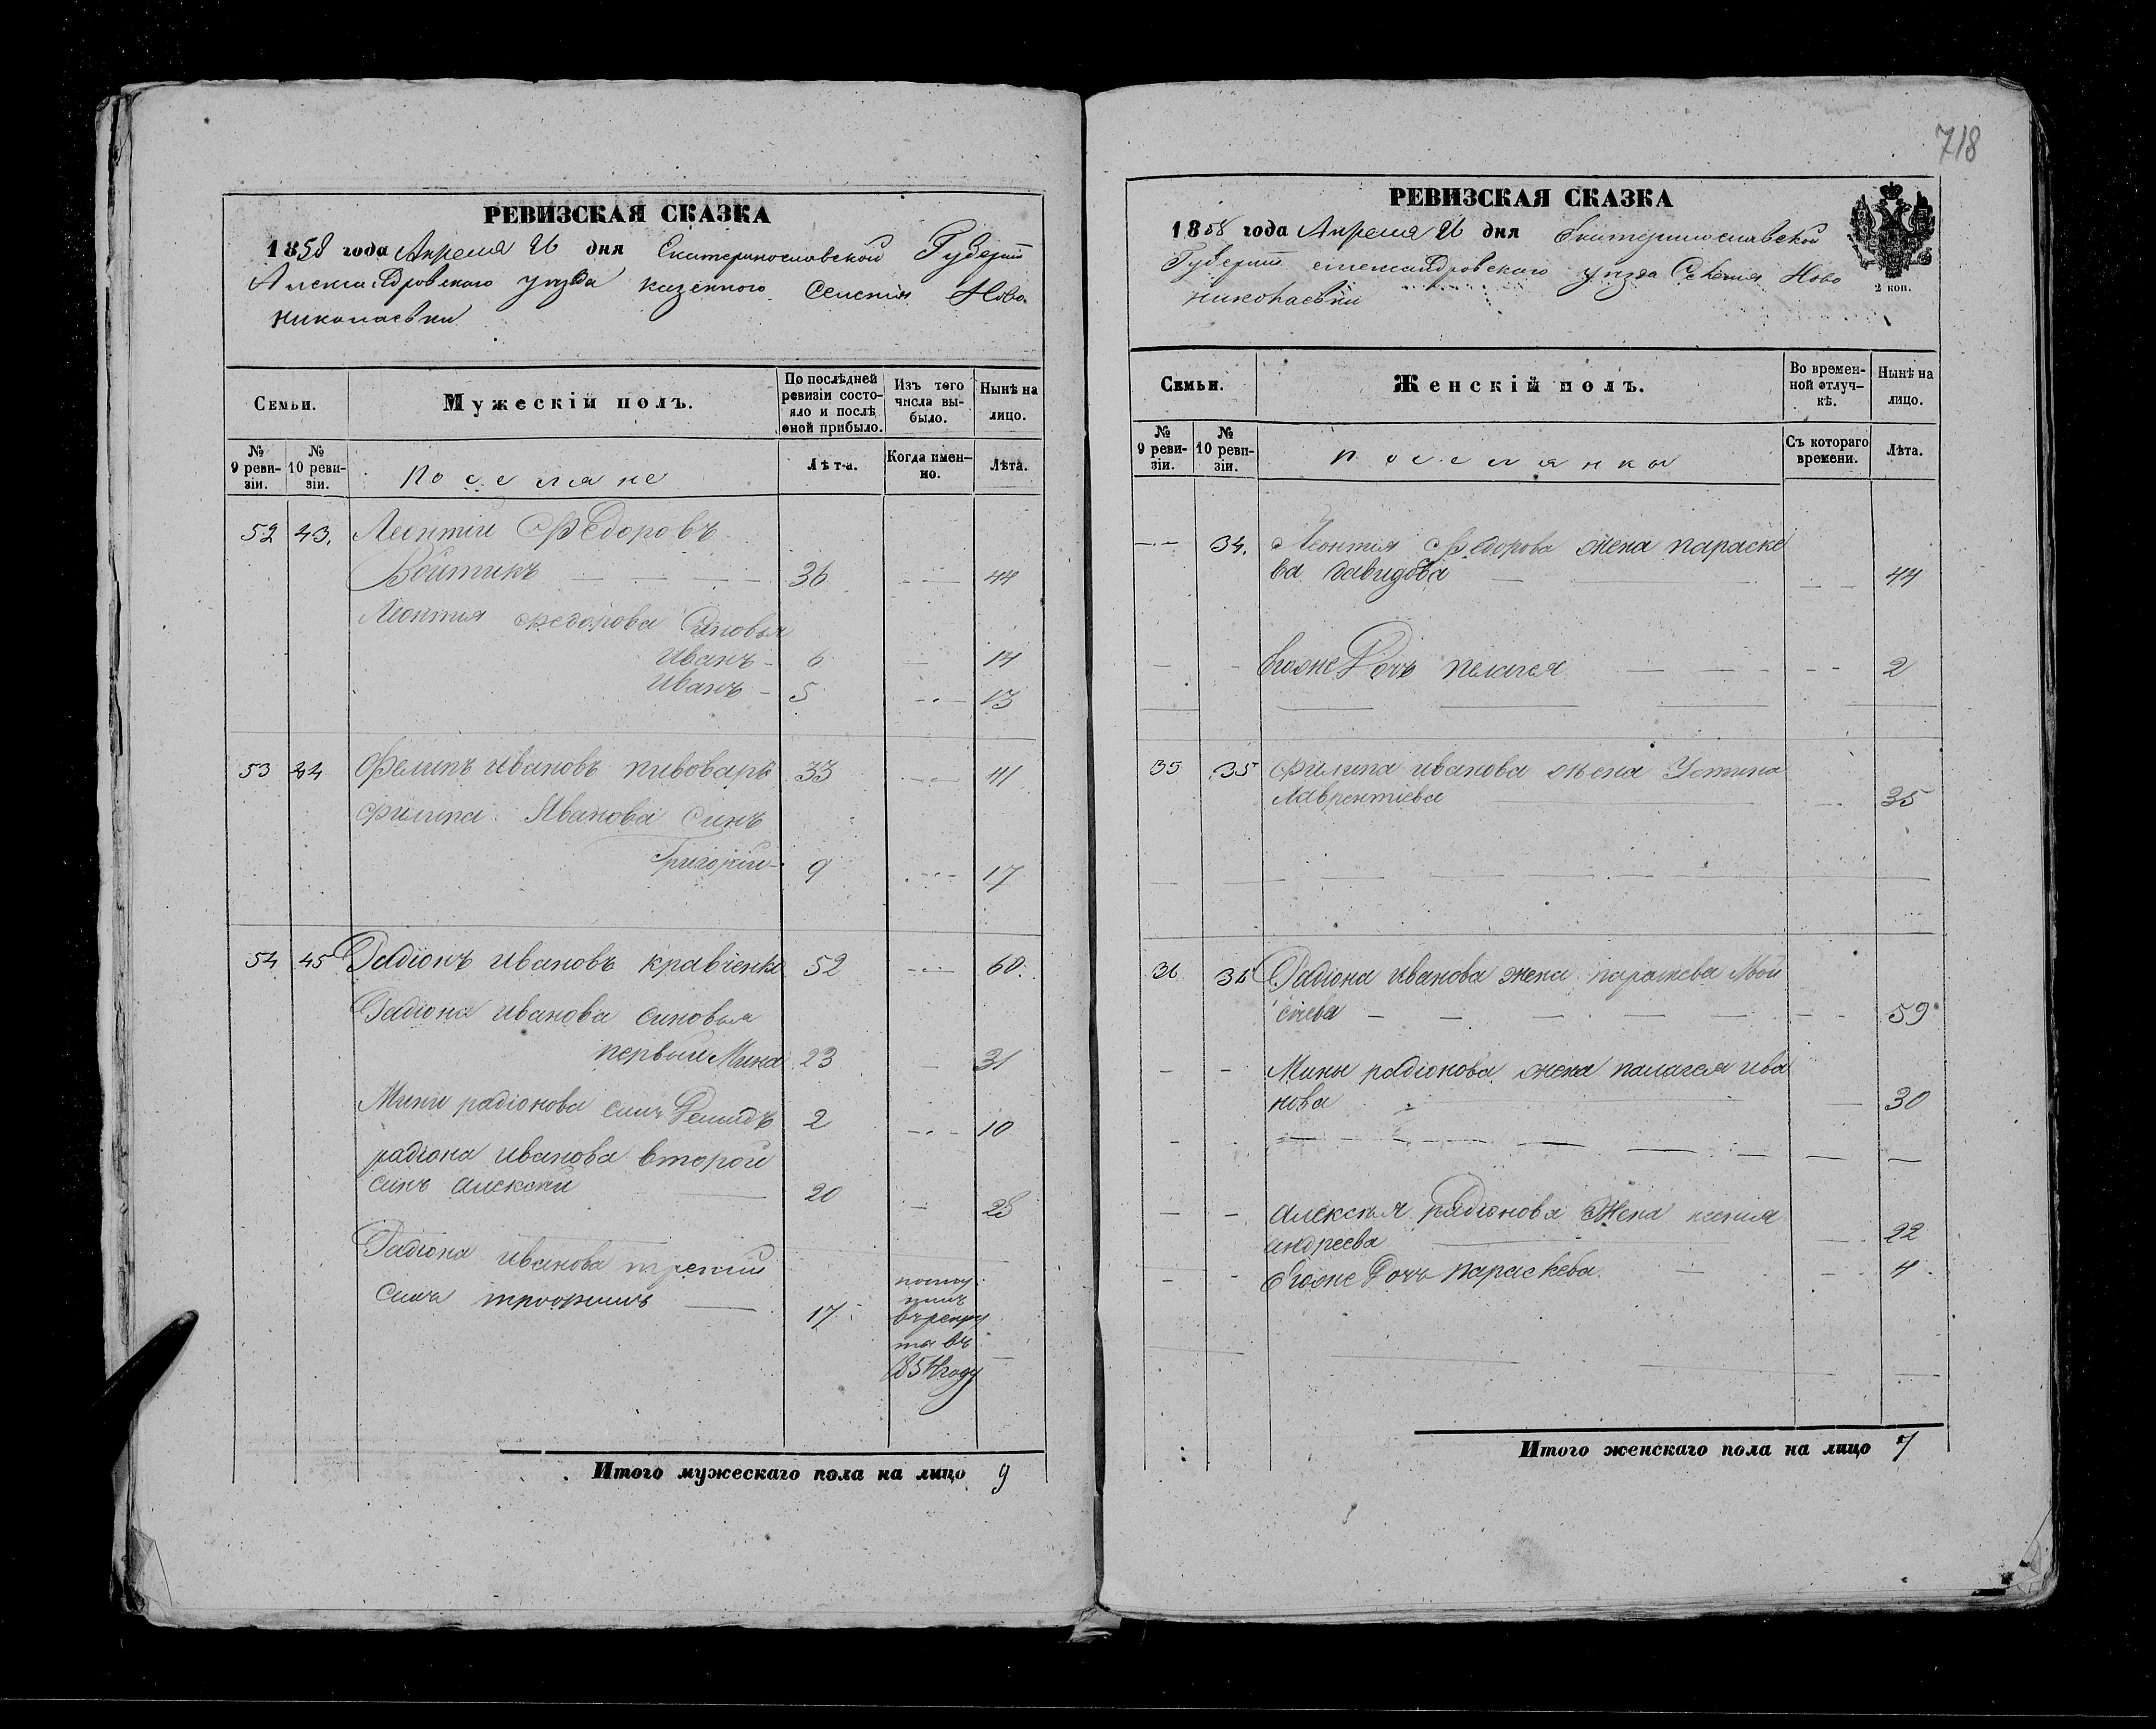 718
РЕВИЗСКАЯ СКАЗКА
1858 года Апреля 26 дня Екатеринославской Губерніи
Александровскаго уезда казенного Селенія Ново
николаевки
Семьи.
Мужескій полъ.
По послѣдней ревизіи состо-яло и послѣ оной прибыло.
Изъ того числа вы-было.
Нынѣ на лицо.
№ 9 реви-зіи.
№ 10 реви-зіи.
Поселяне
Лѣта.
Когда имен-но.
Лѣта.
52 43. Леонтій Федоровъ
Войтикъ 36 44
Леонтия федорова Синовья
Иванъ 6 14
Иванъ 5 13
53 44 Фелипъ Ивановъ пивоваръ 33 41
филипа Иванова Синъ
Григорій 9 17
54 45 Радіонъ Ивановъ кравченко 52 60.
Радіона Иванова синовья
первый Мина 23 31
Мини радіонова синъ Демидъ 2 10
радіона Иванова второй
синъ алексей 20 28
Радіона Иванова третий
синъ трофимъ 17
поступилъ
врекру
та въ
1854году
Итого мужескаго пола на лицо 9
РЕВИЗСКАЯ СКАЗКА
1858 года Апреля 26 дня Екатеринославской
Губерніи александровскаго уезда Селенія Ново
николаевки
2 коп.
Семьи.
Женскій полъ.
Во времен-ной отлуч-кѣ.
Нынѣ на лицо.
№ 9 реви-зіи.
№ 10 реви-зіи.
поселянки
Съ котораго времени.
Лѣта.
34. Леонтия Федорова жена параске
ва давидова 44
Егоже Дочь пелагея 2
35 35 филипа иванова жена Устина
Лаврентіева 35
36 36 Радіона Иванова жена параскева Мои
сіева 59
Мины радіонова жена палагея ива
нова 30
алексея Радіонова Жена ксения
андреева 22
Егоже Дочь параскева 4
Итого женскаго пола на лицо 7